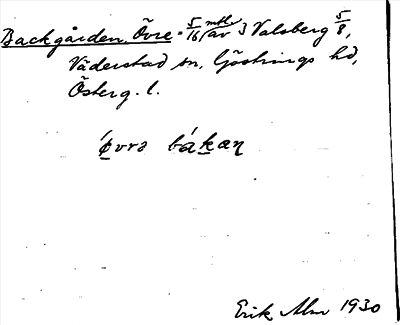 Backgården, Övre. 5/16 mtl av 3 Valsberg 5/8,
Väderstad sn, Göstrings hd,
Österg. l.
ǿvrə bákaɳ
Erik Alm 1930